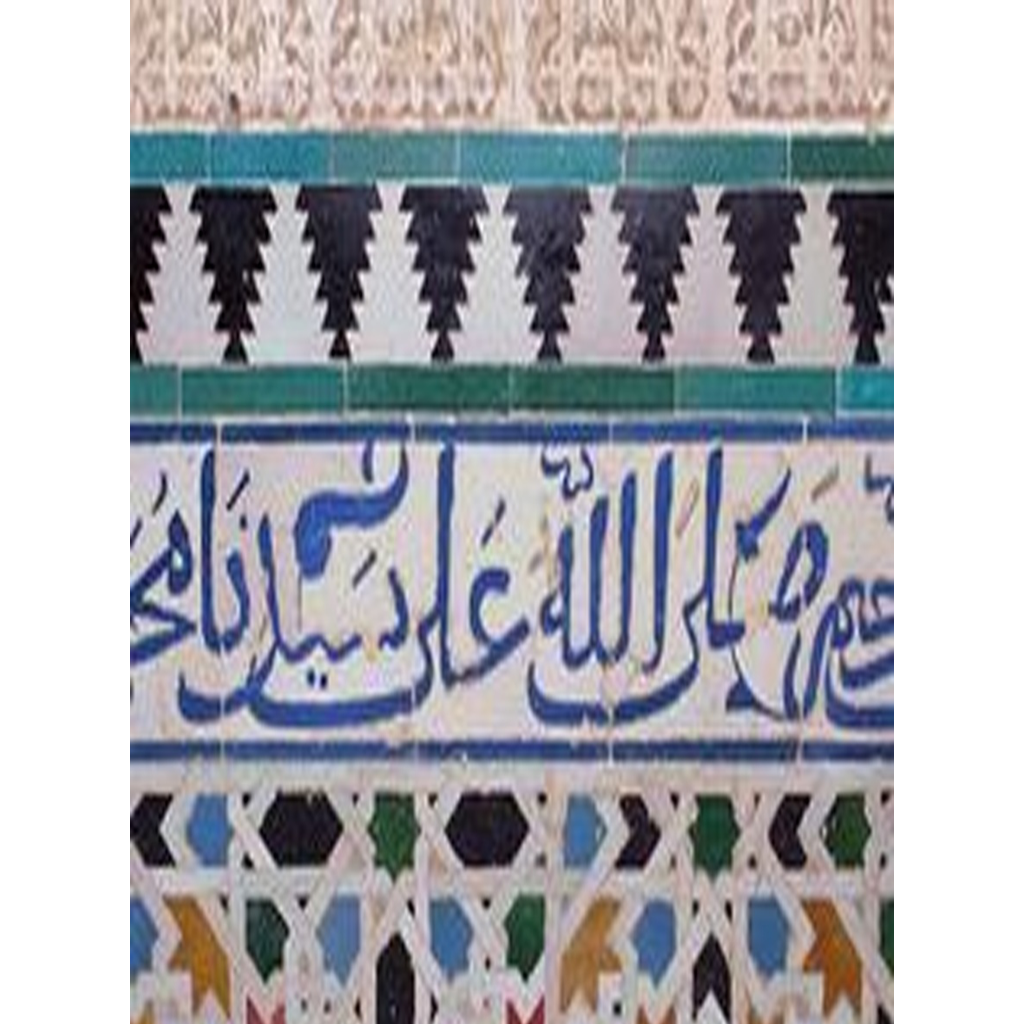 صلى الله على سيدنا